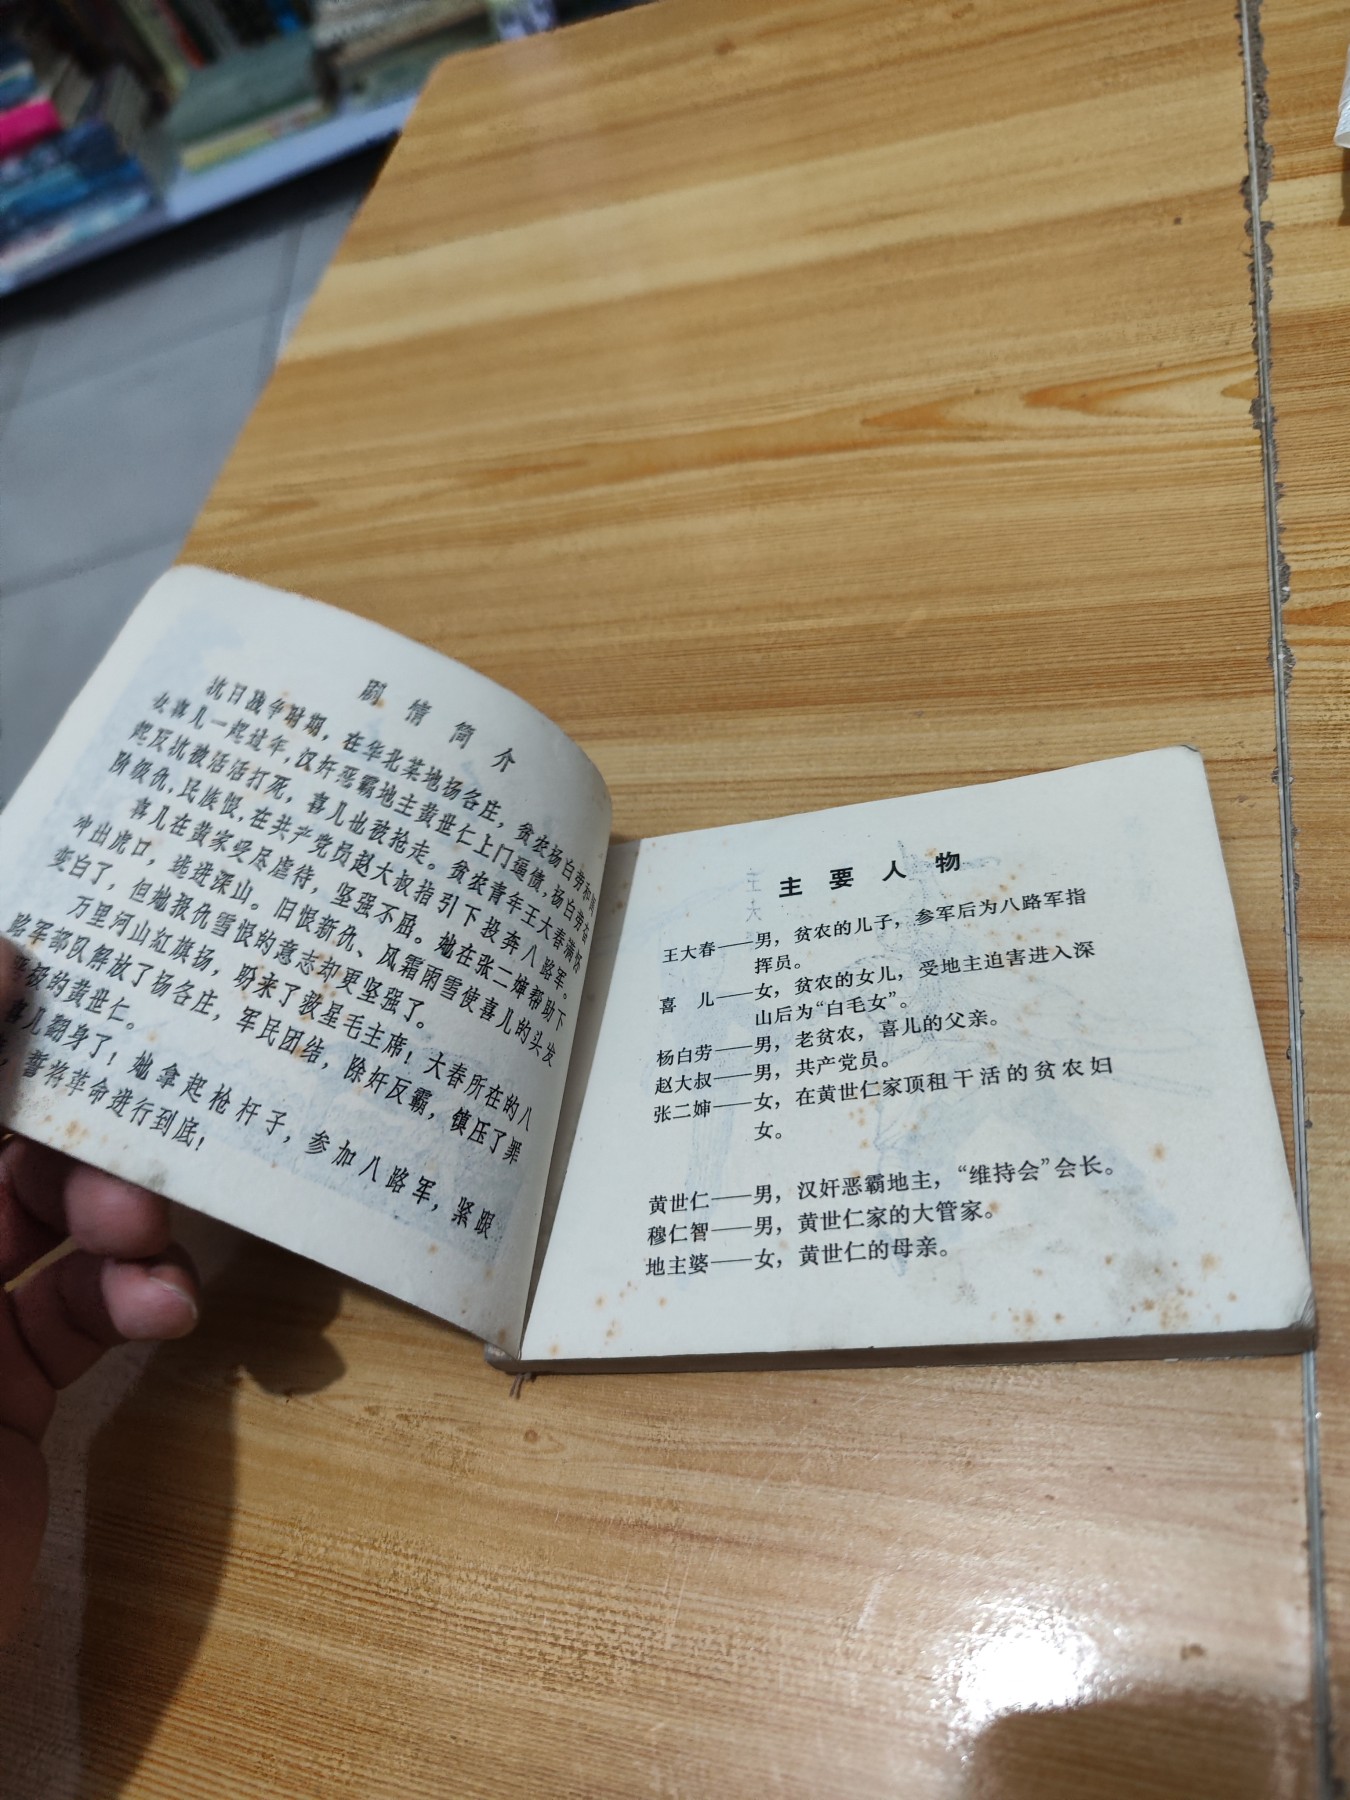 剧情简介
抗日战争时期，在华北某地杨各庄，贫农杨白劳和
女喜儿一起过年，汉奸恶霸地主黄世仁上门逼债，杨白劳奋
起反抗被活活打死，喜儿也被抢走。贫农青年王大春满怀
阶级仇，民族恨，在共产党员赵大叔指引下投奔八路军。
喜儿在黄家受尽虐待，坚强不屈。她在张二婶帮助下
冲出虎口，逃进深山。旧恨新仇、风霜雨雪使喜儿的头发
变白了，但她报仇雪恨的意志却更坚强了。
万里河山红旗扬，盼来了救星毛主席！大春所在的八
路军部队解放了杨各庄，军民团结，除奸反霸，镇压了罪
极的黄世仁。
喜儿翻身了！她拿起枪杆子，参加八路军，紧跟
誓将革命进行到底！
主要人物
王大春——男，贫农的儿子，参军后为八路军指
挥员。
喜　儿——女，贫农的女儿，受地主迫害进入深
山后为“白毛女”。
杨白劳——男，老贫农，喜儿的父亲。
赵大叔——男，共产党员。
张二婶——女，在黄世仁家顶租干活的贫农妇
女。
黄世仁——男，汉奸恶霸地主，“维持会”会长。
穆仁智——男，黄世仁家的大管家。
地主婆——女，黄世仁的母亲。